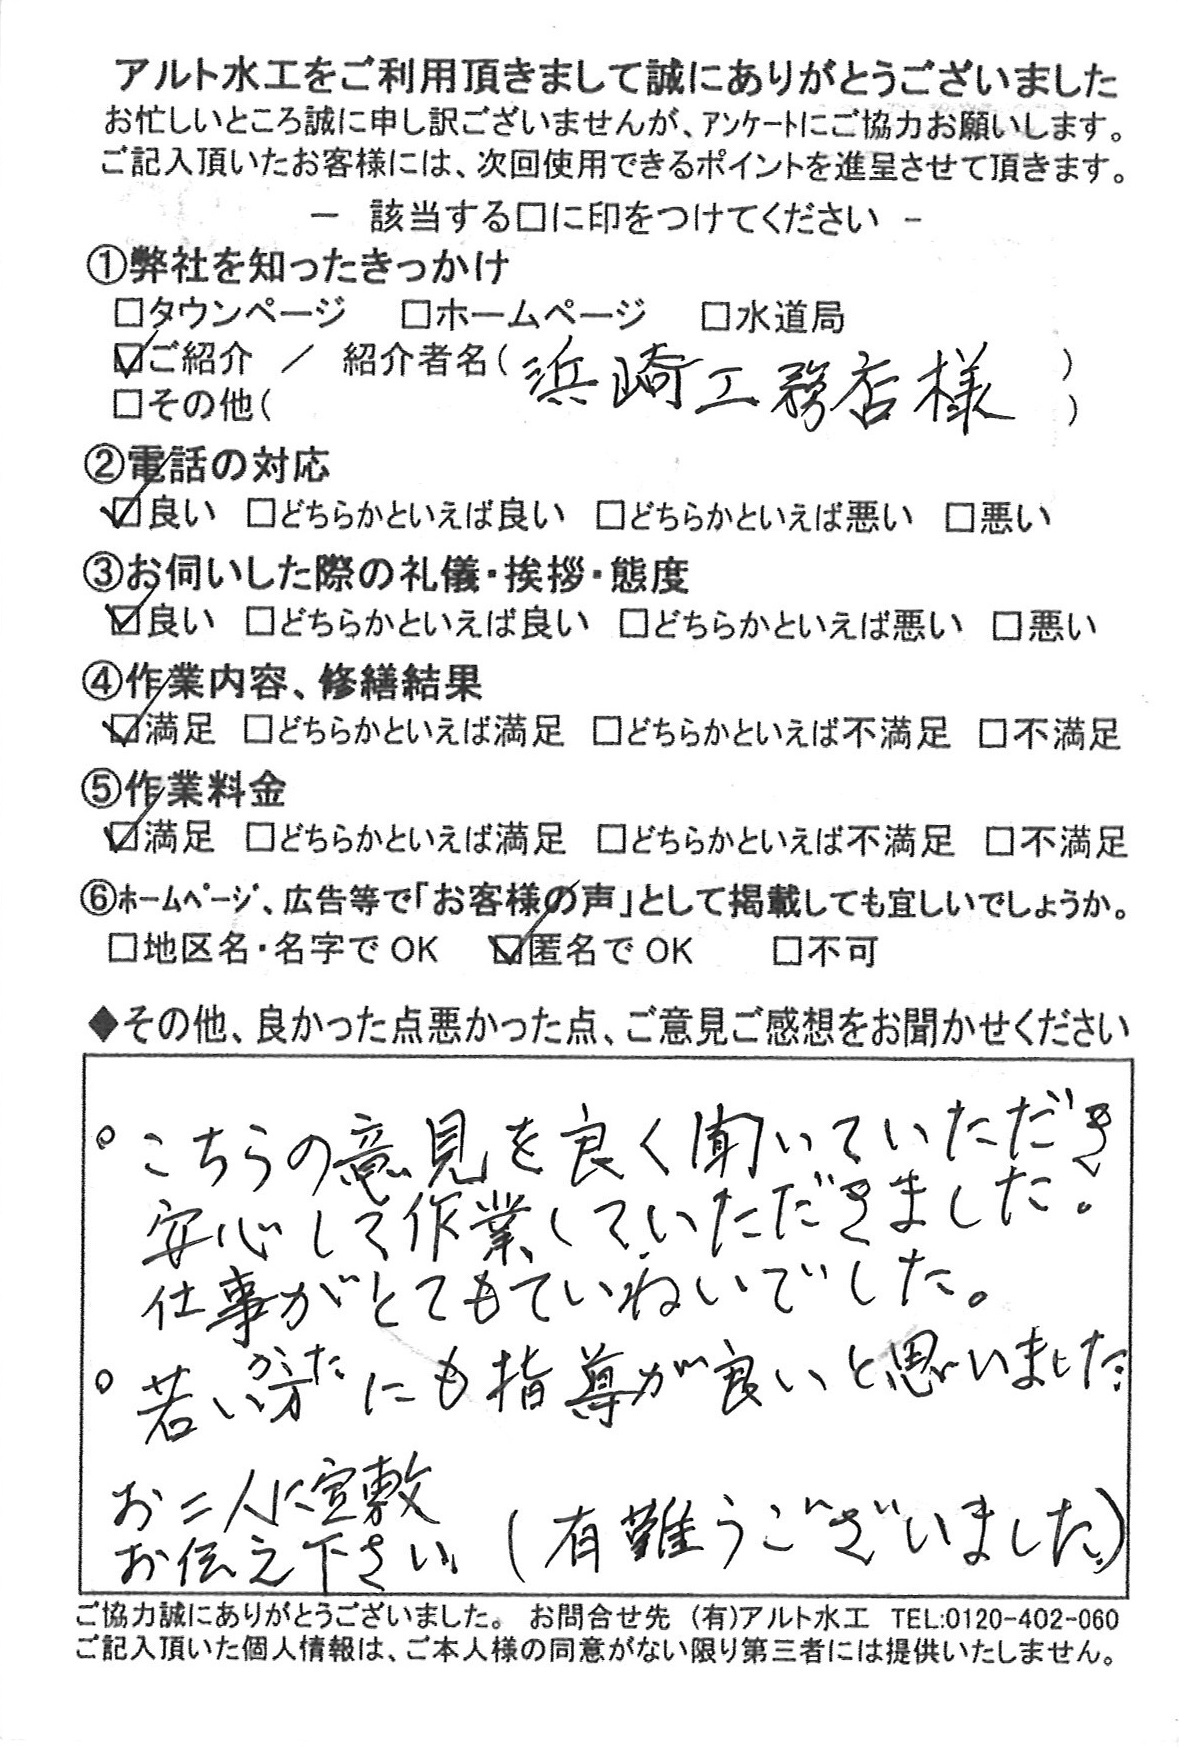 アルト水工をご利用頂きまして誠にありがとうございました
お忙しいところ誠に申し訳ございませんが、アンケートにご協力お願いします。
ご記入頂いたお客様には、次回使用できるポイントを進呈させて頂きます。
－ 該当する□に印をつけてください －
①弊社を知ったきっかけ
□タウンページ □ホームページ □水道局
☑ご紹介 ／ 紹介者名( 浜崎工務店様 )
□その他( )
②電話の対応
☑良い □どちらかといえば良い □どちらかといえば悪い □悪い
③お伺いした際の礼儀・挨拶・態度
☑良い □どちらかといえば良い □どちらかといえば悪い □悪い
④作業内容、修繕結果
☑満足 □どちらかといえば満足 □どちらかといえば不満足 □不満足
⑤作業料金
☑満足 □どちらかといえば満足 □どちらかといえば不満足 □不満足
⑥ホームページ、広告等で「お客様の声」として掲載しても宜しいでしょうか。
□地区名・名字でOK ☑匿名でOK □不可
◆その他、良かった点悪かった点、ご意見ご感想をお聞かせください
。こちらの意見を良く聞いていただき
安心して作業していただきました。
仕事がとてもていねいでした。
。若い方かたにも指導が良いと思いました
お二人に宜敷
お伝え下さい (有難うございました)
ご協力誠にありがとうございました。 お問合せ先 (有)アルト水工 TEL:0120-402-060
ご記入頂いた個人情報は、ご本人様の同意がない限り第三者には提供いたしません。